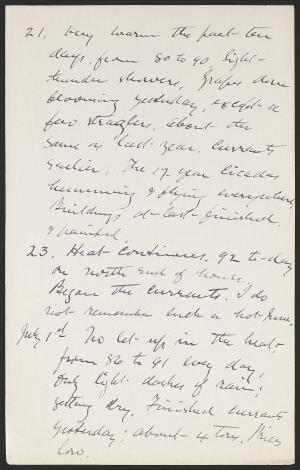 21. Very warm the past ten
days, from 80 to 90, light
thunder showers, Grapes done
blooming yesterday, except a
few stragglers, about the
same as last year. Currants
earlier. The 17 year cicadas
humming & flying everywhere,
Buildings at last finished
& painted.
23. Heat continues, 92 to-day
on north end of house.
Began the currants. I do
not remember such a hot June,
July 1st No let-up in the heat,
from 86 to 91 every day,
only light dashes of rain;
getting dry. Finished currants
yesterday; about 4 tons. Prices
low.